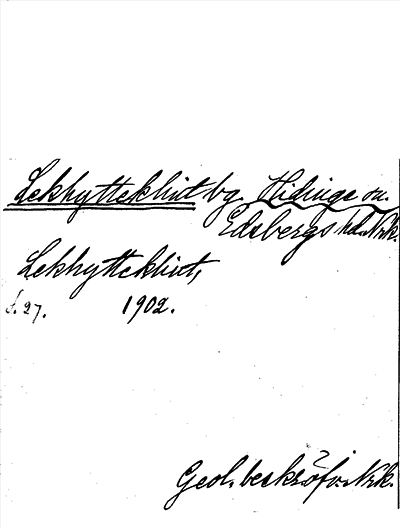 Lekhytteklint bg. Hidinge sn.
Edsbergs hd. Nrk.
Lekhytteklint,
s. 27. 1902.
Geol. beskr. öfv. Nrk.